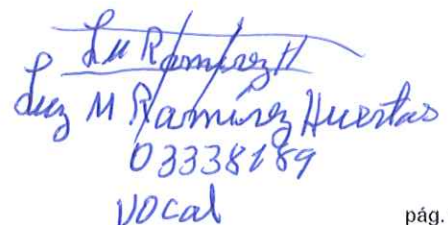 Lu Ramírez H
Luz M Ramírez Huertas
03338189
VOCal
pág.